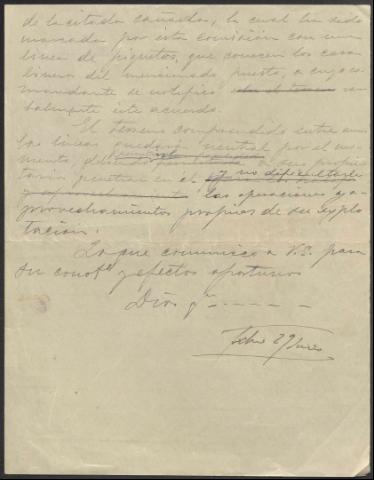 de la citada cañada, la cual ha sido
marcada por esta comisión con una
linea de piquetes, que conocen los cara
bineros del mencionado puesto, a cuyo co
mandante se notifico verbalmente este acuerdo.
El terreno comprendido entre am
bas lineas quedará neutral por el mo
mento, a sus propie
tarios penetrar en el y no dificultarles
las operaciones y a
provechamientos propios de su explo
tación.
Lo que comunico a V.E. para
su conocto y efectos oportunos
Dios gue - - - - -